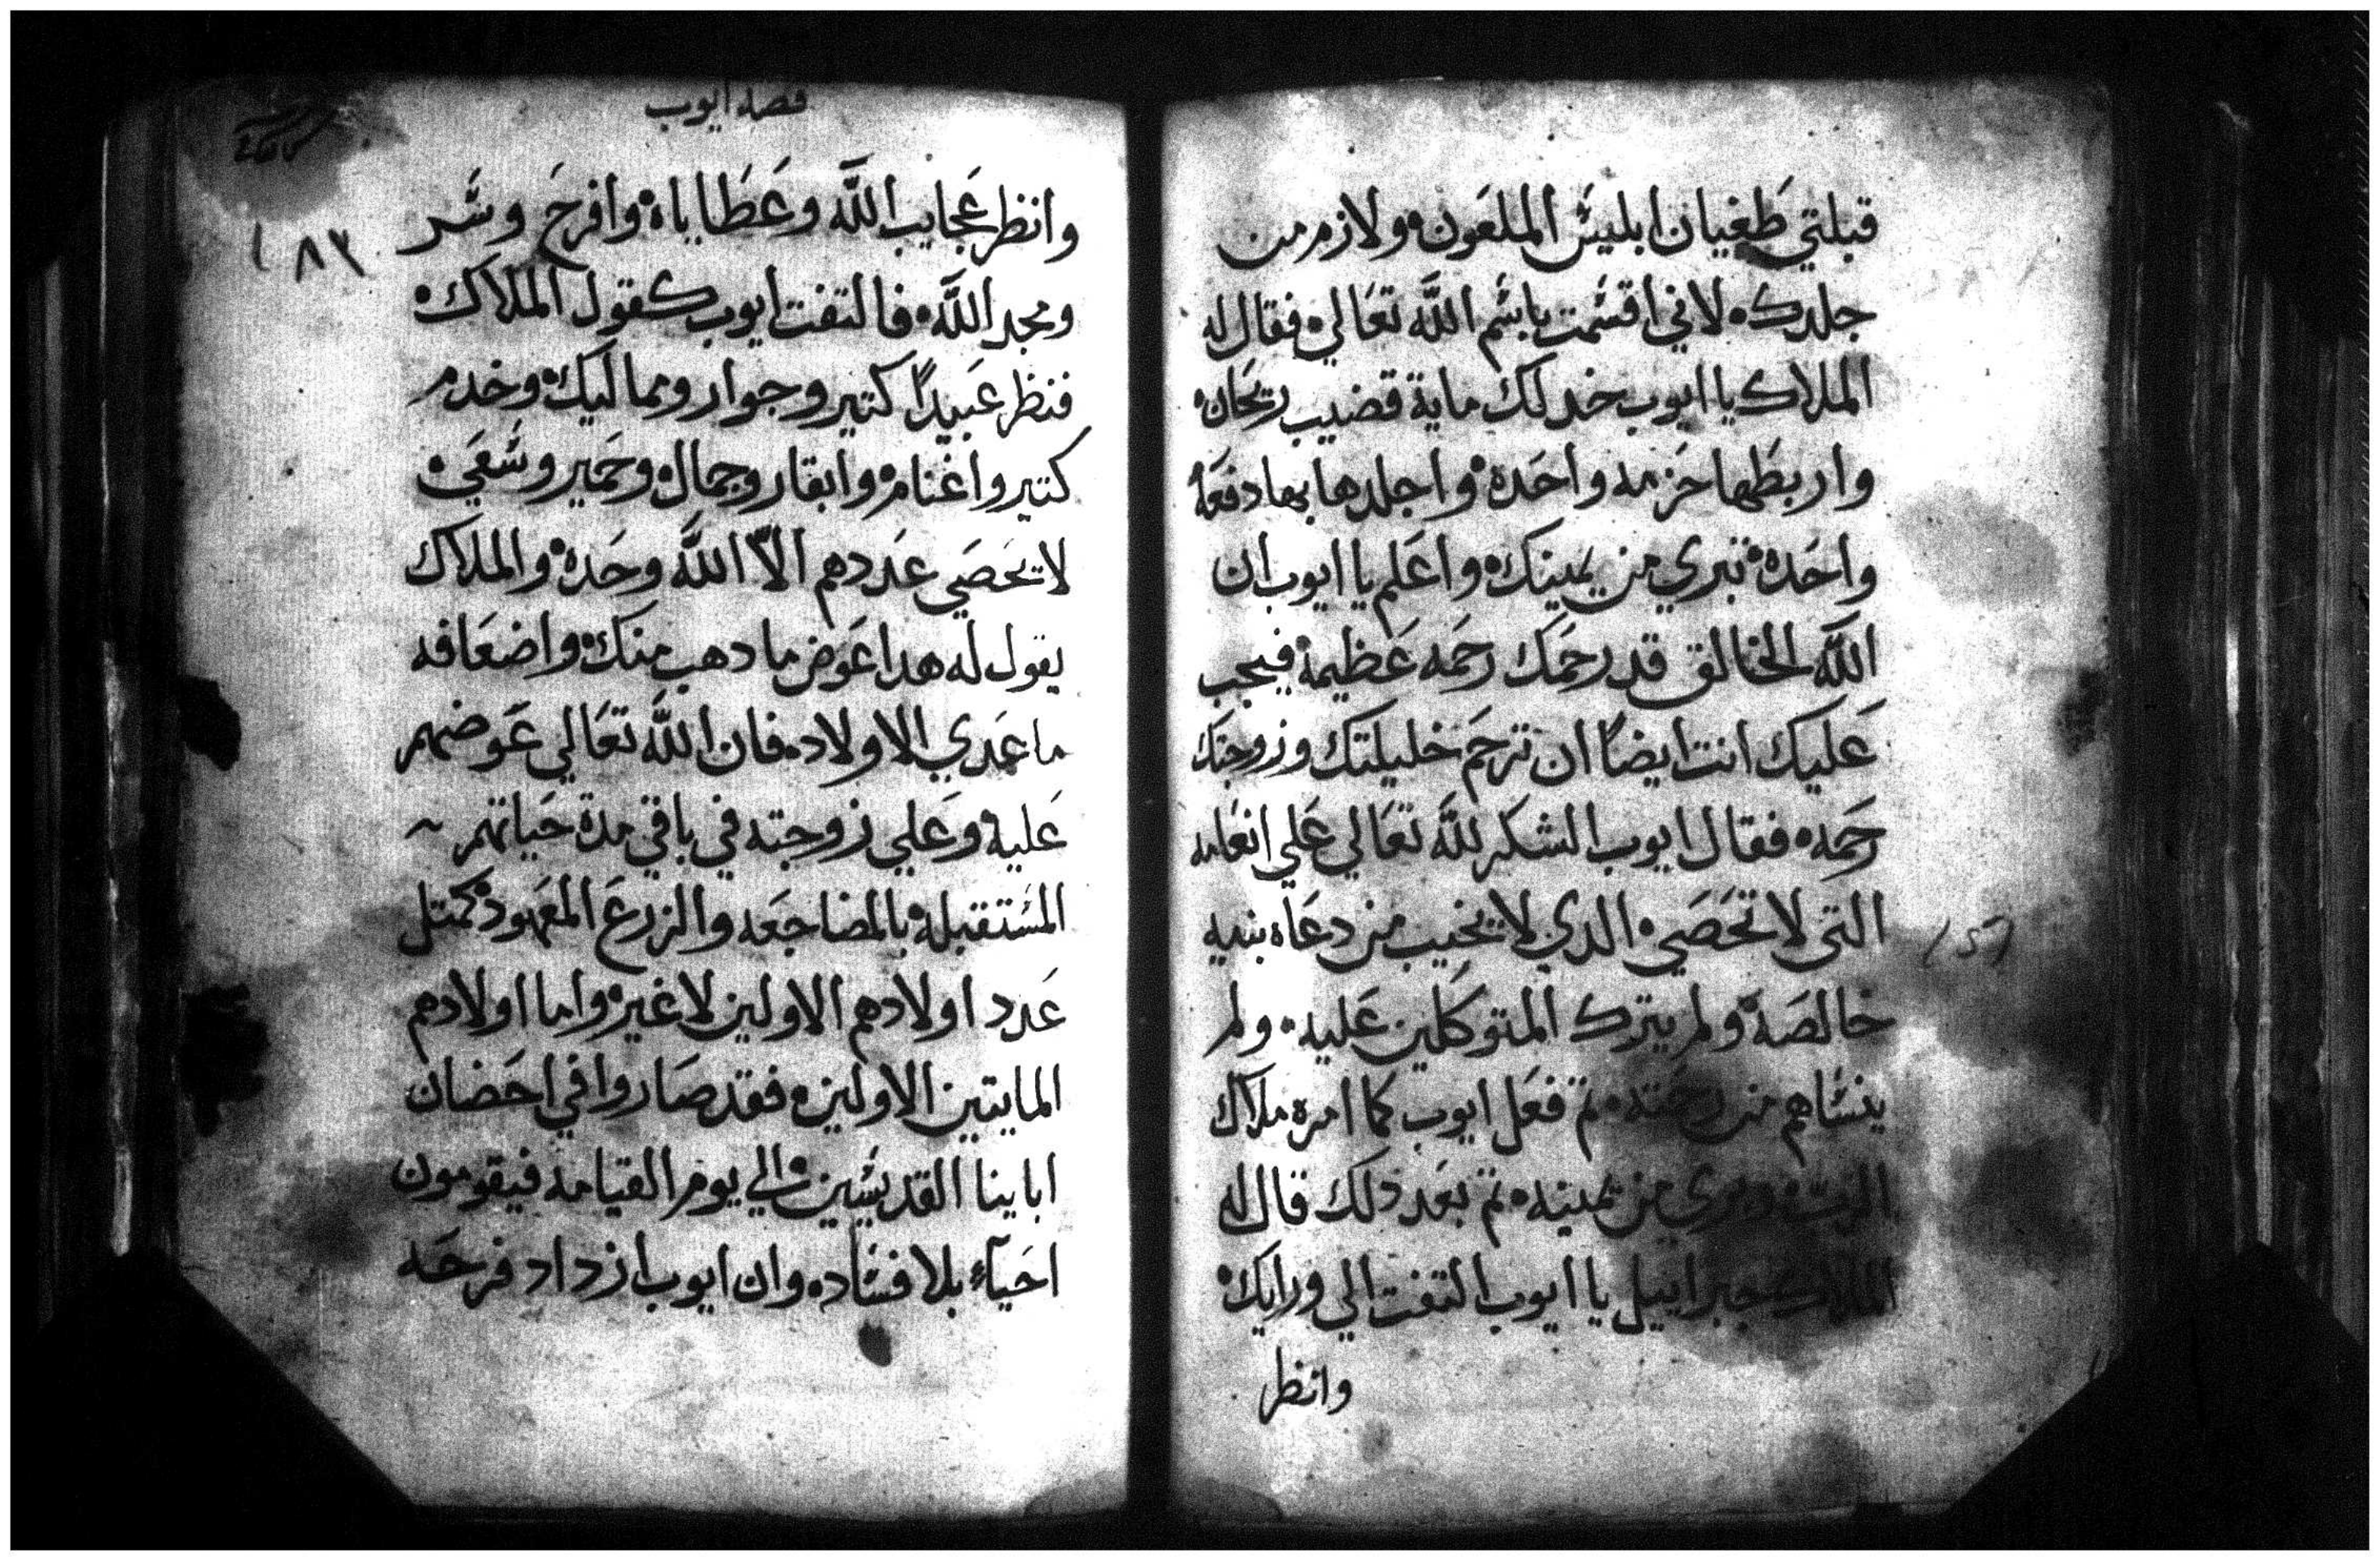 قبلتي طغيان ابليس الملعون ولازم من
جلدك لاني اقسمت باسم الله تعالي فقال له
الملاك يا ايوب خد لك ماية قضيب ريحان
واربطها حزمه واحدة واجلدها بها دفعه
واحدة تبري من يمينك واعلم يا ايوب ان
الله الخالق قد رحمك رحمه عظيمة فيجب
عليك انت ايضاً ان ترحم خليلتك وزوجتك
رحمه فقال ايوب الشكر لله تعالي علي انعامه
التي لا تحصي الدي لا يخيب من دعاه بنيه
خالصة ولم يترك المتوكلين عليه ولم
ينساهم من رحمته تم فعل ايوب كما امره ملاك
الرب وبري من يمينه تم بعد دلك قال له
الملاك جبراييل يا ايوب التفت الي ورايك
وانظر
قصة ايوب
وانظر عجايب الله وعطاياه وافرح وسر
ومجد الله فالتفت ايوب كقول الملاك
فنظر عبيداً كتير وجوار ومماليك وخدم
كتير واغنام وابقار وجمال وحمير وسعي
لا تحصي عددهم الاّ الله وحده والملاك
يقول له هدا عوض ما دهب منك واضعافه
ما عدي الاولاد فان الله تعالي عوضهم
عليه وعلي زوجته في باقي مدة حياتهم
المستقبله بالمضاجعه والزرع المعهود كمتل
عدد اولادهم الاولين لا غير واما اولادهم
المايتين الاولين فقد صاروا في احضان
اباينا القديسين الي يوم القيامه فيقومون
احيآء بلا فساد وان ايوب ازداد فرحه